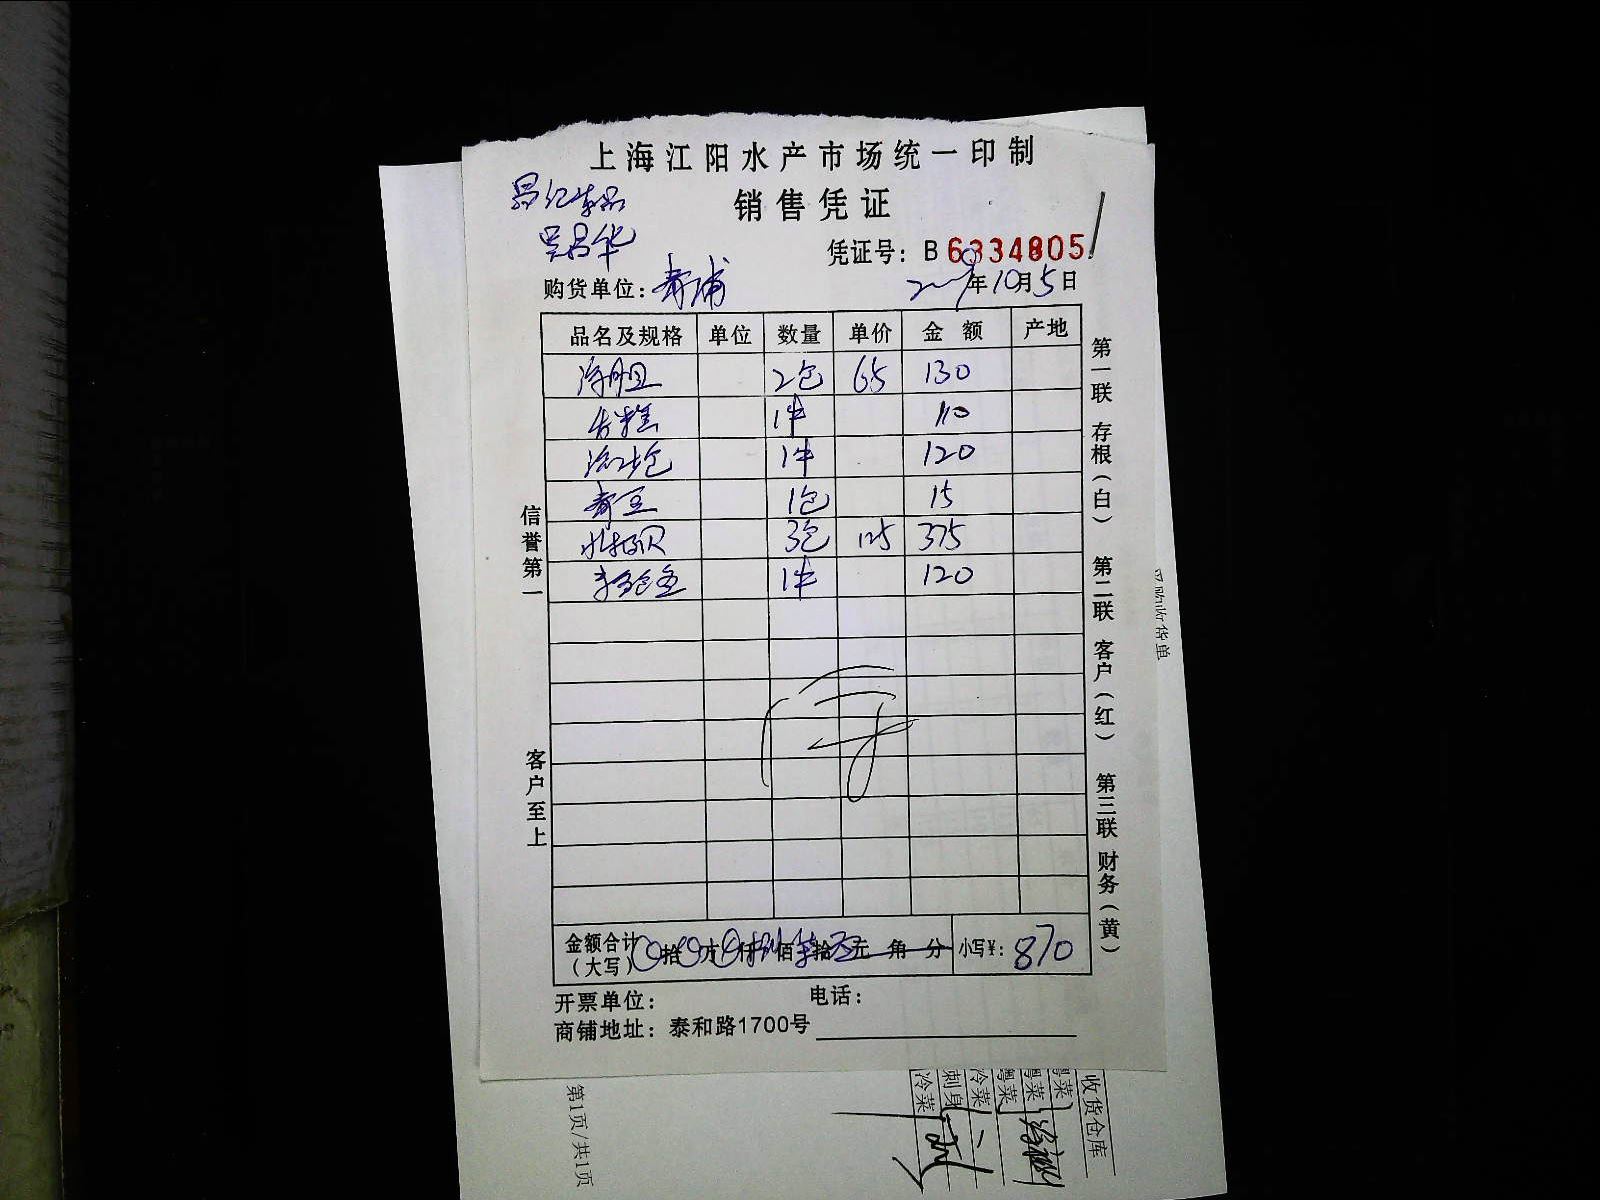 上海江阳水产市场统一印制
销售凭证
吴昌华
凭证号：B 6334805
购货单位：青浦
2009年10月5日
品名及规格 单位 数量 单价 金额 产地
海胆 2包 65 130
年糕 1件 110
1件 120
青豆 1包 15
3包 125 375
1件 120
金额合计（大写） 0拾0万0仟捌佰柒拾元角分 小写¥：870
开票单位： 电话：
商铺地址：泰和路1700号
信誉第一
客户至上
第一联 存根（白） 第二联 客户（红） 第三联 财务（黄）
采购收货单
收货仓库
粤菜
粤菜
粤菜
冷菜
刺身
冷菜
第1页/共1页